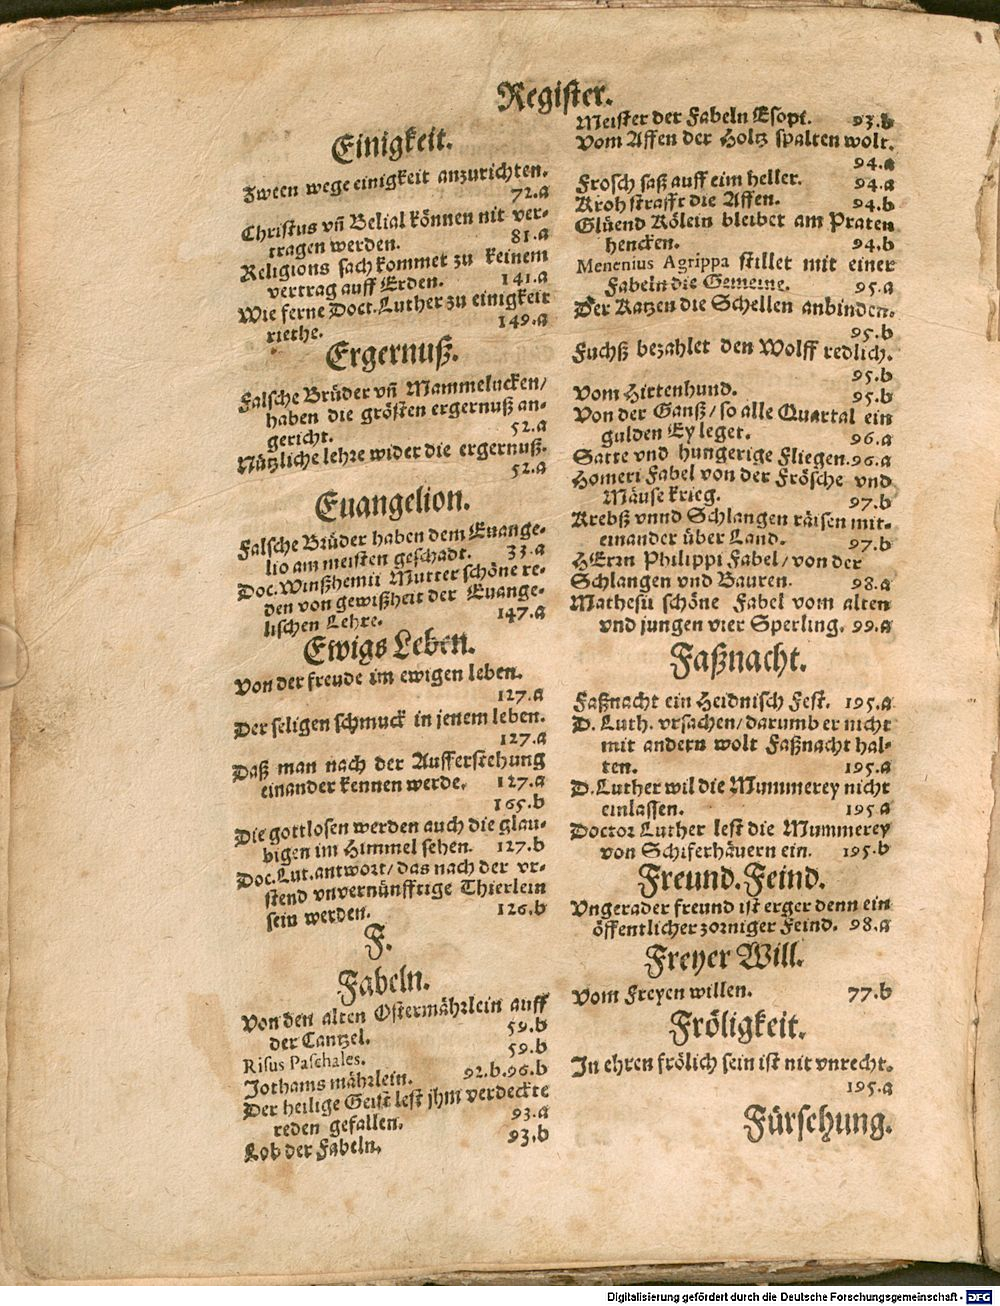 Register.
Einigkeit.
Zween wege einigkeit anzurichten.
72.a
Christus vñ Belial können nit ver-
tragen werden. 81.a
Religions sach kommet zu keinem
vertrag auff Erden. 141.a
Wie ferne Doct. Luther zu einigkeit
riethe. 149.a
Ergernuß.
Falsche Brüder vñ Mammelucken/
haben die grösten ergernuß an-
gericht. 52.a
Nützliche lehre wider die ergernuß.
52.a
Euangelion.
Falsche Brüder haben dem Euange-
lio am meisten geschadt. 33.a
Doc. Winßhemii Mutter schöne re-
den von gewißheit der Euange-
lischen Lehre. 147.a
Ewigs Leben.
Von der freude im ewigen leben.
127.a
Der seligen schmuck in jenem leben.
127.a
Daß man nach der Aufferstehung
einander kennen werde. 127.a
165.b
Die gottlosen werden auch die glau-
bigen im Himmel sehen. 127.b
Doc. Lut. antwort/ das nach der vr-
stend vnvernünfftige Thierlein
sein werden. 126.b
F.
Fabeln.
Von den alten Ostermährlein auff
der Cantzel. 59.b
Risus Paschales. 59.b
Jothams mährlein. 92.b.96.b
Der heilige Geist lest jhm verdeckte
reden gefallen. 93.a
Lob der Fabeln. 93.b
Meister der Fabeln Esopi. 93.b
Vom Affen der Holtz spalten wolt.
94.a
Frosch saß auff eim heller. 94.a
Kroh strafft die Affen. 94.b
Glüend Kölein bleibet am Praten
hencken. 94.b
Menenius Agrippa stillet mit einer
Fabeln die Gemeine. 95.a
Der Katzen die Schellen anbinden.
95.b
Fuchß bezahlet den Wolff redlich.
95.b
Vom Hirtenhund. 95.b
Von der Ganß/ so alle Quartal ein
gulden Ey leget. 96.a
Satte vnd hungerige Fliegen. 96.a
Homeri Fabel von der Frösche vnd
Mäuse krieg. 97.b
Krebß vnnd Schlangen räisen mit-
einander über Land. 97.b
HErrn Philippi Fabel/ von der
Schlangen vnd Bauren. 98.a
Mathesii schöne Fabel vom alten
vnd jungen vier Sperling. 99.a
Faßnacht.
Faßnacht ein Heidnisch Fest. 195.a
D. Luth. vrsachen/ darumb er nicht
mit andern wolt Faßnacht hal-
ten. 195.a
D. Luther wil die Mummerey nicht
einlassen. 195 a
Doctor Luther lest die Mummerey
von Schiferhäuern ein. 195.b
Freund. Feind.
Vngerader freund ist erger denn ein
öffentlicher zorniger Feind. 98.a
Freyer Will.
Vom Freyen willen. 77.b
Fröligkeit.
In ehren frölich sein ist nit vnrecht.
195.a
Fürsehung.
Digitalisierung gefördert durch die Deutsche Forschungsgemeinschaft - DFG